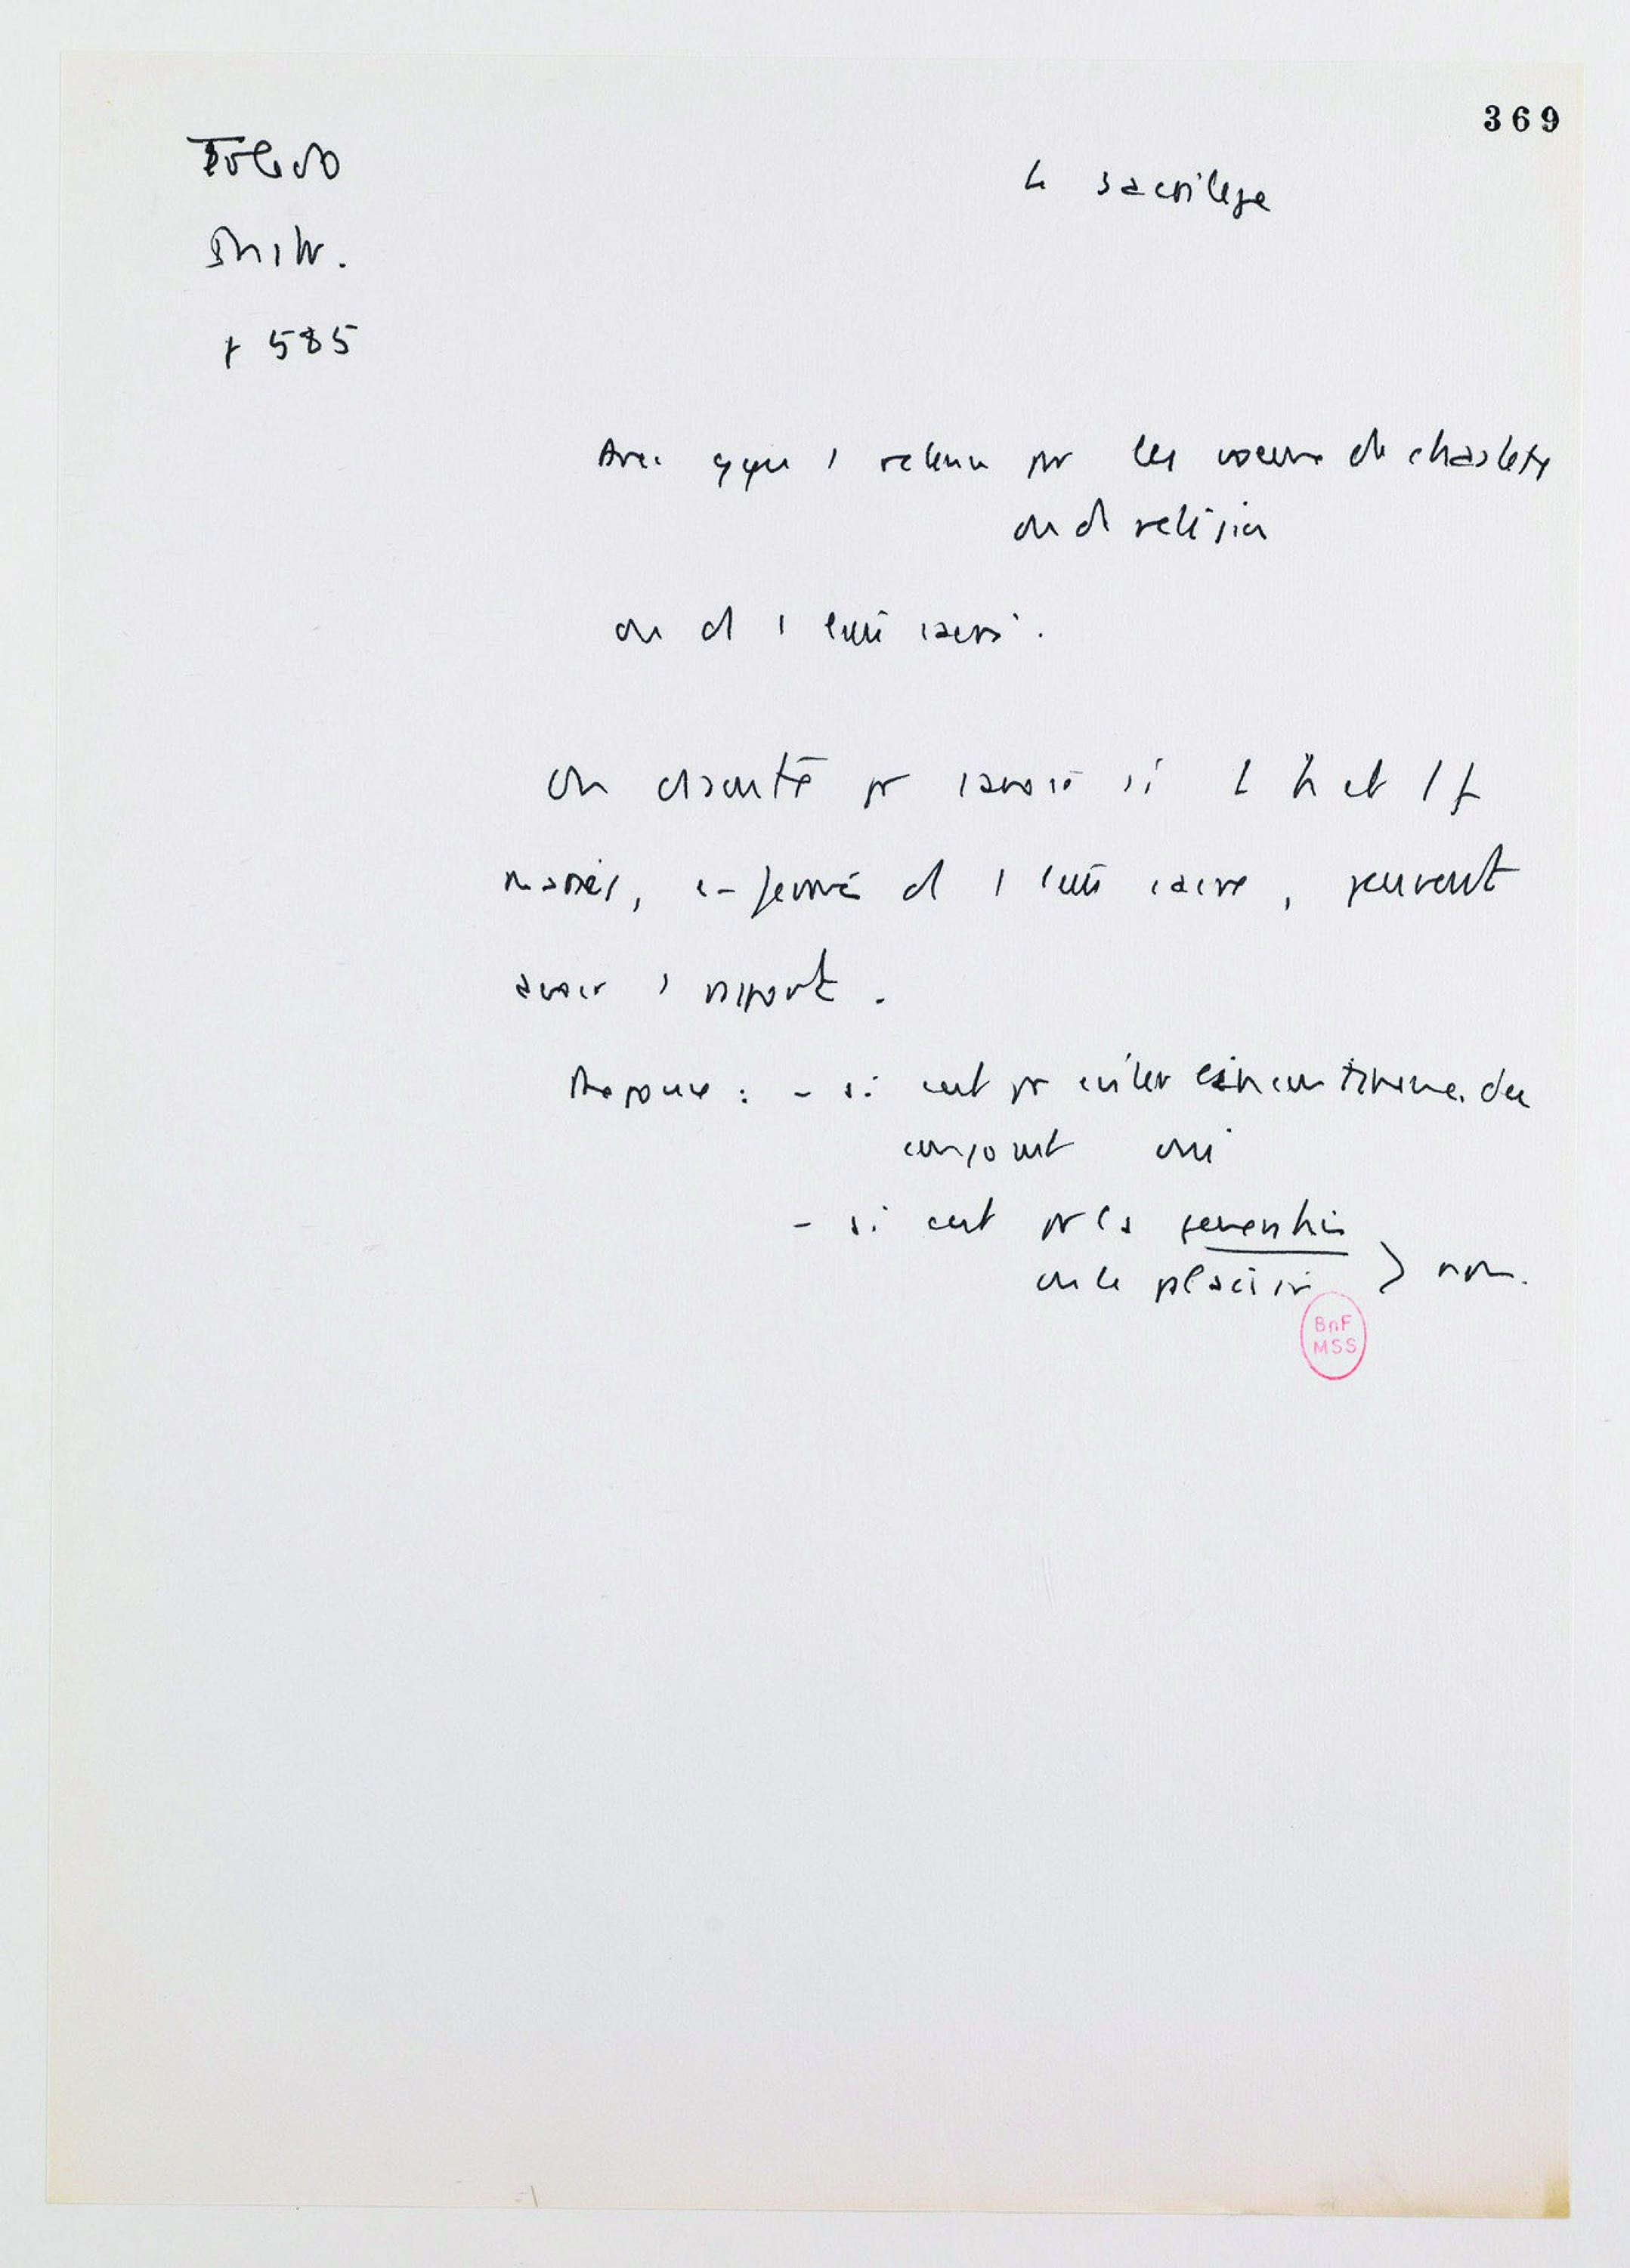 369
Toledo
Le sacrilege
p 585
Avec qqu 1 retenu pr les voeux de chastete
ou d religion
ou d 1 lieu sacré.
On discute pr savoir si l h et l f
mariés, enfermé d 1 lieu sacré, peuvent
avoir 1 rapport.
Reponse : - si cest pr eviter incontinence du
conjoint oui
- si cest pr la generation
ou le plaisir > non.
BnF
MSS